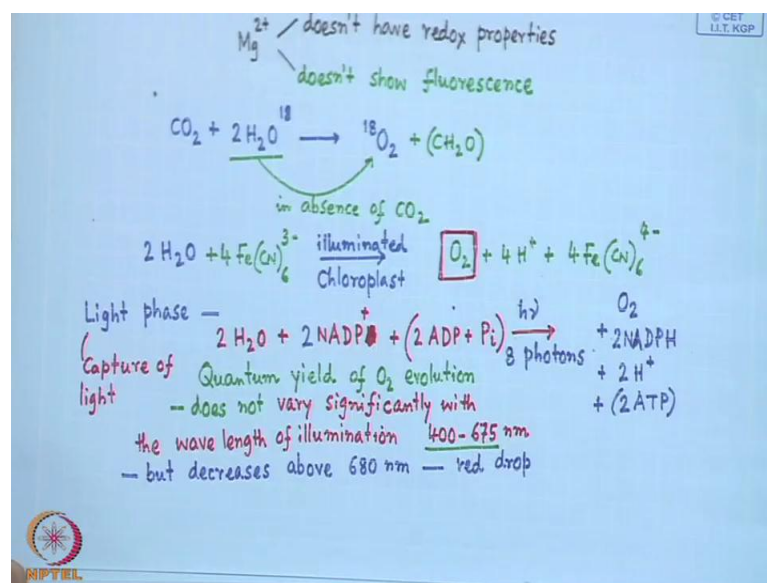 © CET
I.I.T. KGP
Mg²⁺ doesn't have redox properties
doesn't show fluorescence
CO₂ + 2H₂O¹⁸ ⟶ ¹⁸O₂ + (CH₂O)
in absence of CO₂
2H₂O + 4Fe(CN)₆³⁻ illuminated Chloroplast ⟶ O₂ + 4H⁺ + 4Fe(CN)₆⁴⁻
Light phase —
2H₂O + 2NADP⁺ + (2ADP + Pi) hν 8 photons ⟶ O₂ + 2NADPH + 2H⁺ + (2ATP)
Capture of light
Quantum yield of O₂ evolution
— does not vary significantly with
the wave length of illumination 400-675 nm
— but decreases above 680 nm — red drop
NPTEL